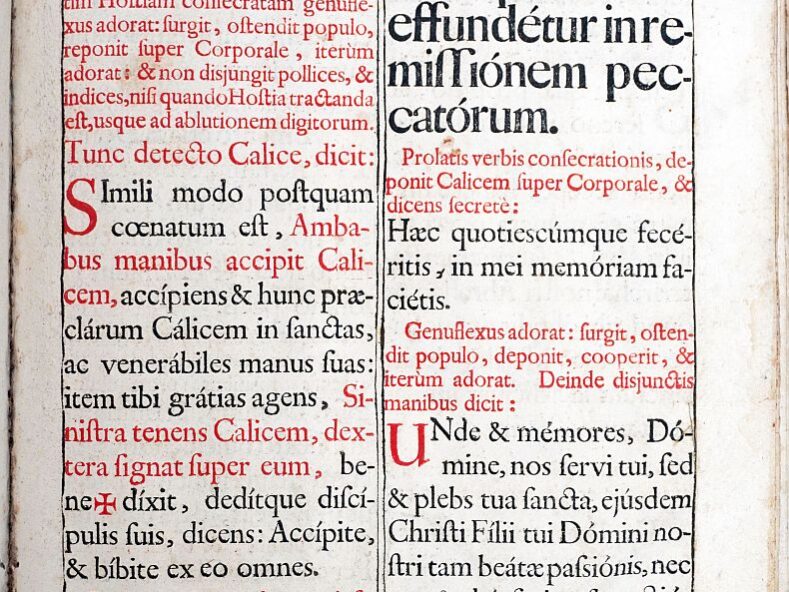 tim Hostiam consecratam genufle-
xus adorat: surgit, ostendit populo,
reponit super Corporale, iterùm
adorat: & non disjungit pollices, &
indices, nisi quando Hostia tractanda
est, usque ad ablutionem digitorum.
Tunc detecto Calice, dicit:
SImili modo postquam
cœnatum est, Amba-
bus manibus accipit Cali-
cem, accípiens & hunc præ-
clárum Cálicem in sanctas,
ac venerábiles manus suas:
item tibi grátias agens, Si-
nistra tenens Calicem, dex-
tera signat super eum, be-
ne✠díxit, dedítque discí-
pulis suis, dicens: Accípite,
& bíbite ex eo omnes.
effundétur in re-
missiónem pec-
catórum.
Prolatis verbis consecrationis, de-
ponit Calicem super Corporale, &
dicens secretè:
Hæc quotiescúmque fecé-
ritis, in mei memóriam fa-
ciétis.
Genuflexus adorat: surgit, osten-
dit populo, deponit, cooperit, &
iterùm adorat. Deinde disjunctis
manibus dicit:
UNde & mémores, Dó-
mine, nos servi tui, sed
& plebs tua sancta, ejúsdem
Christi Fílii tui Dómini no-
stri tam beátæ passiónis, nec